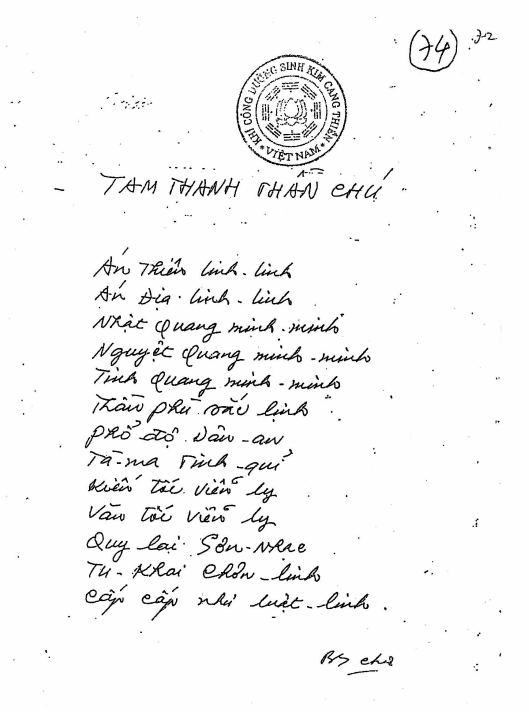 74
72
KHÍ CÔNG DƯỠNG SINH KIM CANG THIỀN
* VIỆT NAM *
- TAM THANH THẦN CHÚ
Án Thiên linh - linh
Án Địa - linh - linh
Nhật Quang minh - minh
Nguyệt Quang minh - minh
Tinh Quang minh - minh
Thần phù sắc lịnh
phổ độ Dân - an
Tà - ma Tinh - quỉ
Kiến tốc viễn ly
Văn tốc viễn ly
Quy lai Sơn - Nhạc
Tu - Khai Chơn - linh
Cấp cấp như luật - linh .